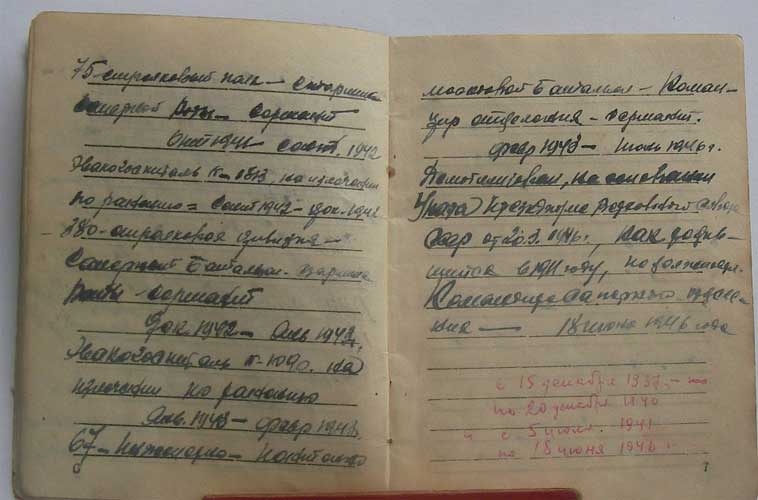 75-стрелковый полк - Старшина
Саперной Роты - Сержант
Окт 1941 - Сент. 1942
Эвакогоспиталь №-1813, на излечении
по ранению = Сент 1942 - Дек. 1942
380-стрелковая дивизия -
Саперный Батальон. Старшина
Роты - Сержант
Дек. 1942 - Янв 1943.
Эвакогоспиталь №-1090. На
излечении по ранению
Янв. 1943 - февр 1943.
67- Инженерно-
6
мостовой Батальон - Коман-
дир отделения - Сержант.
февр 1943 - Июнь 1946 г.
Демобилизован, на основании
Указа Президиума Верховного Совета
СССР от 20.3. 1946., как родив-
шийся в 1911 году, по должности.
Командира саперного отделе-
ния - 18 июня 1946 года
с 15 декабря 1937. - по
по 20 декабря 1940
и с 5 июля. 1941
по 18 июня 1946 г.
7